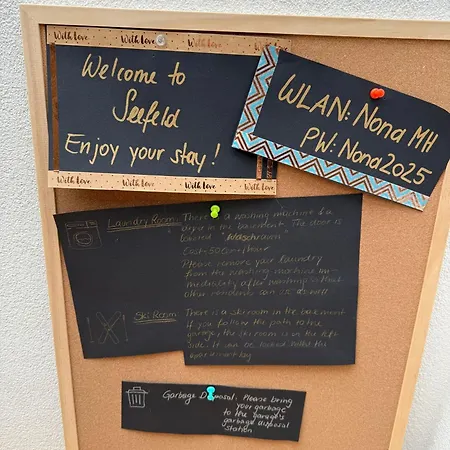 With Love With Love With Love
Welcome to
Seefeld
Enjoy your stay!
With Love With Love With Love With Love
WLAN: Nona MH
PW: Nona2025
Laundry Room: There is a washing machine & a
dryer in the basement. The door is
labeled "Waschraum"
Please remove your laundry
from the washing machine im-
mediately after washing so that
other residents can use as well
Ski Room: There is a ski room in the basement
if you follow the path to the
garage, the ski room is on the left
side. It can be locked with the
apartment key
Garbage Disposal: Please bring
your garbage
to the garage's
garbage disposal
station